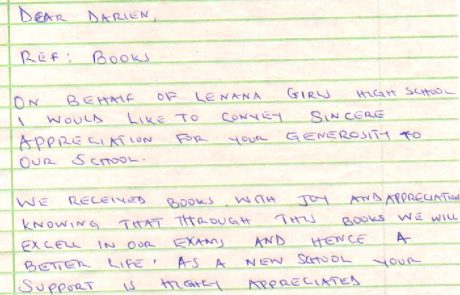 DEAR DARIEN,
REF: BOOKS
ON BEHALF OF LENANA GIRLS HIGH SCHOOL
I WOULD LIKE TO CONVEY SINCERE
APPRECIATION FOR YOUR GENEROSITY TO
OUR SCHOOL.
WE RECEIVED BOOKS WITH JOY AND APPRECIATION
KNOWING THAT THROUGH THIS BOOKS WE WILL
EXCELL IN OUR EXAMS AND HENCE A
BETTER LIFE. AS A NEW SCHOOL YOUR
SUPPORT IS HIGHLY APPRECIATED